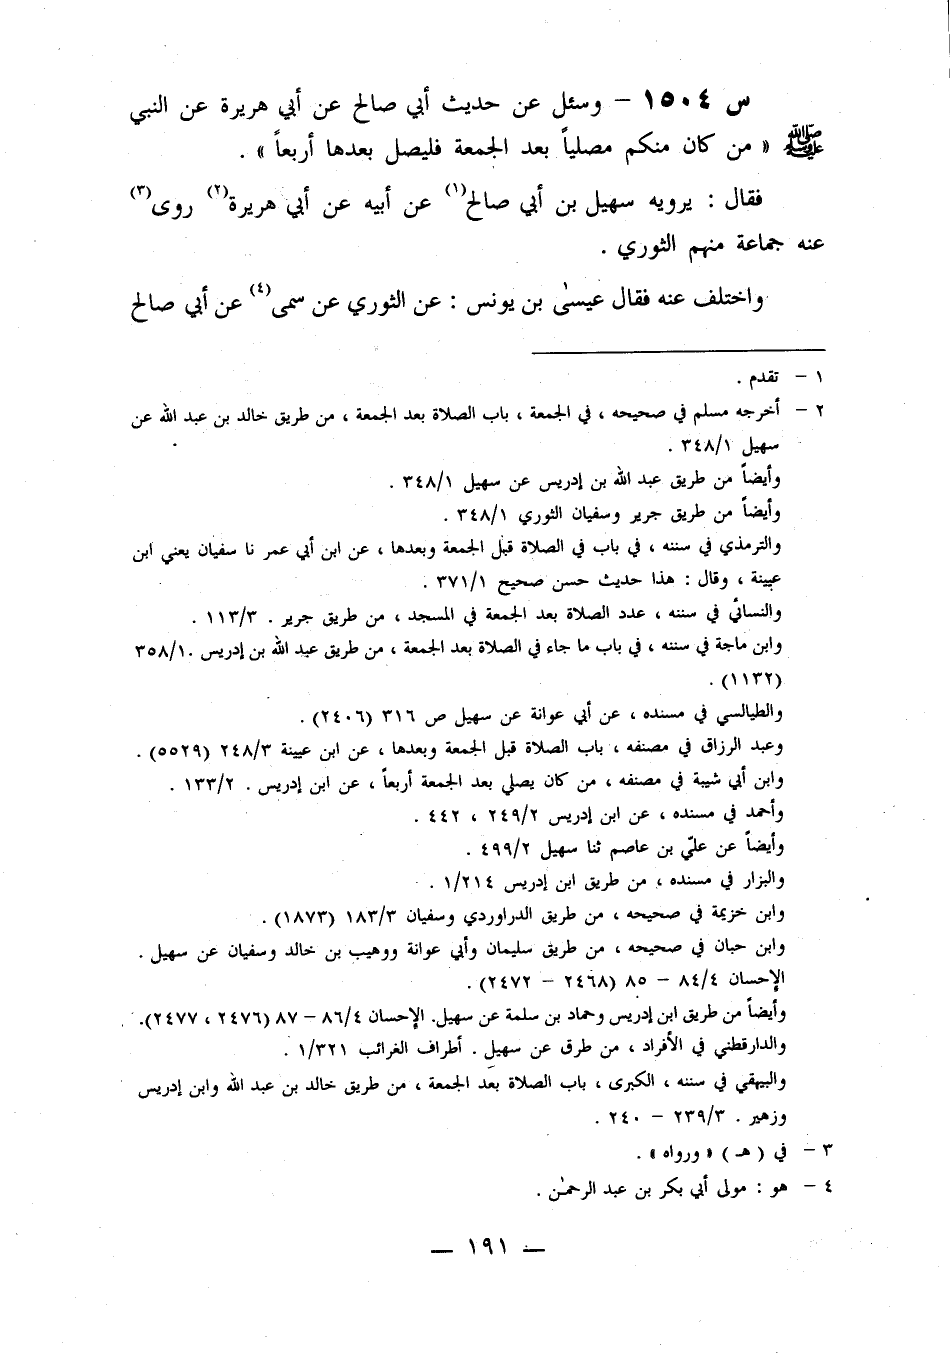 س ١٥٠٤ – وسئل عن حديث أبي صالح عن أبي هريرة عن النبي
ﷺ « من كان منكم مصلياً بعد الجمعة فليصل بعدها أربعاً » .
فقال : يرويه سهيل بن أبي صالح(١) عن أبيه عن أبي هريرة(٢) روى(٣)
عنه جماعة منهم الثوري .
واختلف عنه فقال عيسىٰ بن يونس : عن الثوري عن سمى(٤) عن أبي صالح
١ – تقدم .
٢ – أخرجه مسلم في صحيحه ، في الجمعة ، باب الصلاة بعد الجمعة ، من طريق خالد بن عبد الله عن
سهيل ٣٤٨/١ .
وأيضاً من طريق عبد الله بن إدريس عن سهيل ٣٤٨/١ .
وأيضاً من طريق جرير وسفيان الثوري ٣٤٨/١ .
والترمذي في سننه ، في باب في الصلاة قبل الجمعة وبعدها ، عن ابن أبي عمر نا سفيان يعني ابن
عيينة ، وقال : هذا حديث حسن صحيح ٣٧١/١ .
والنسائي في سننه ، عدد الصلاة بعد الجمعة في المسجد ، من طريق جرير . ١١٣/٣ .
وابن ماجة في سننه ، في باب ما جاء في الصلاة بعد الجمعة ، من طريق عبد الله بن إدريس .٣٥٨/١
(١١٣٢) .
والطيالسي في مسنده ، عن أبي عوانة عن سهيل ص ٣١٦ (٢٤٠٦) .
وعبد الرزاق في مصنفه ، باب الصلاة قبل الجمعة وبعدها ، عن ابن عيينة ٢٤٨/٣ (٥٥٢٩) .
وابن أبي شيبة في مصنفه ، من كان يصلي بعد الجمعة أربعاً ، عن ابن إدريس . ١٣٣/٢ .
وأحمد في مسنده ، عن ابن إدريس ٢٤٩/٢ ، ٤٤٢ .
وأيضاً عن عليّ بن عاصم ثنا سهيل ٤٩٩/٢ .
والبزار في مسنده ، من طريق ابن إدريس ١/٢١٤ .
وابن خزيمة في صحيحه ، من طريق الدراوردي وسفيان ١٨٣/٣ (١٨٧٣) .
وابن حبان في صحيحه ، من طريق سليمان وأبي عوانة ووهيب بن خالد وسفيان عن سهيل .
الإحسان ٨٤/٤ – ٨٥ (٢٤٦٨ – ٢٤٧٢) .
وأيضاً من طريق ابن إدريس وحماد بن سلمة عن سهيل. الإحسان ٨٦/٤ – ٨٧ (٢٤٧٦ ، ٢٤٧٧).
والدارقطني في الأفراد ، من طرق عن سهيل . أطراف الغرائب ١/٣٢١ .
والبيهقي في سننه ، الكبرى ، باب الصلاة بعد الجمعة ، من طريق خالد بن عبد الله وابن إدريس
وزهير . ٢٣٩/٣ – ٢٤٠ .
٣ – في ( هـ ) « ورواه » .
٤ – هو : مولى أبي بكر بن عبد الرحمٰن .
— ١٩١ —